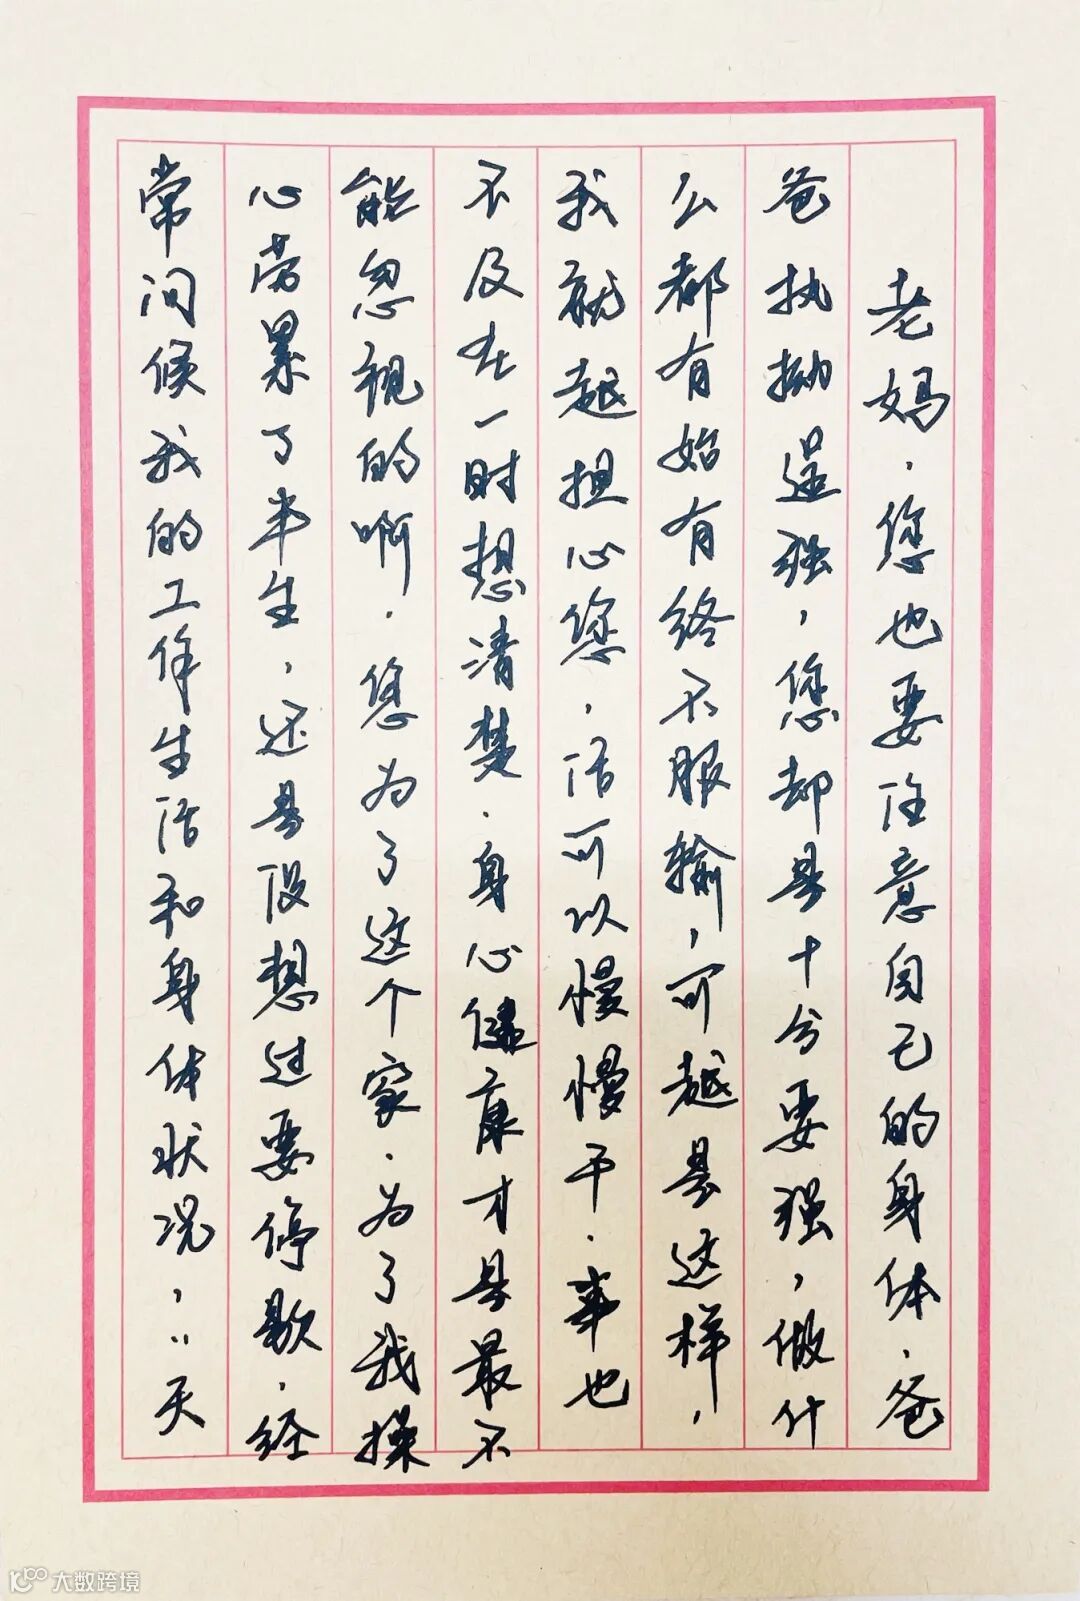 老妈.您也要注意自己的身体.爸
爸执拗逞强,您却是十分要强,做什
么都有始有终不服输,可越是这样,
我就越担心您,活可以慢慢干.事也
不及在一时想清楚.身心健康才是最不
能忽视的啊.您为了这个家.为了我操
心劳累了半生,还是没想过要停歇.经
常问候我的工作生活和身体状况,"天
大数跨境